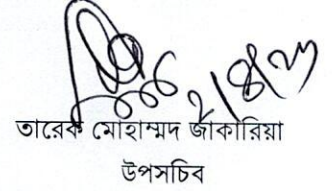 তারেক মোহাম্মদ জাকারিয়া
উপসচিব